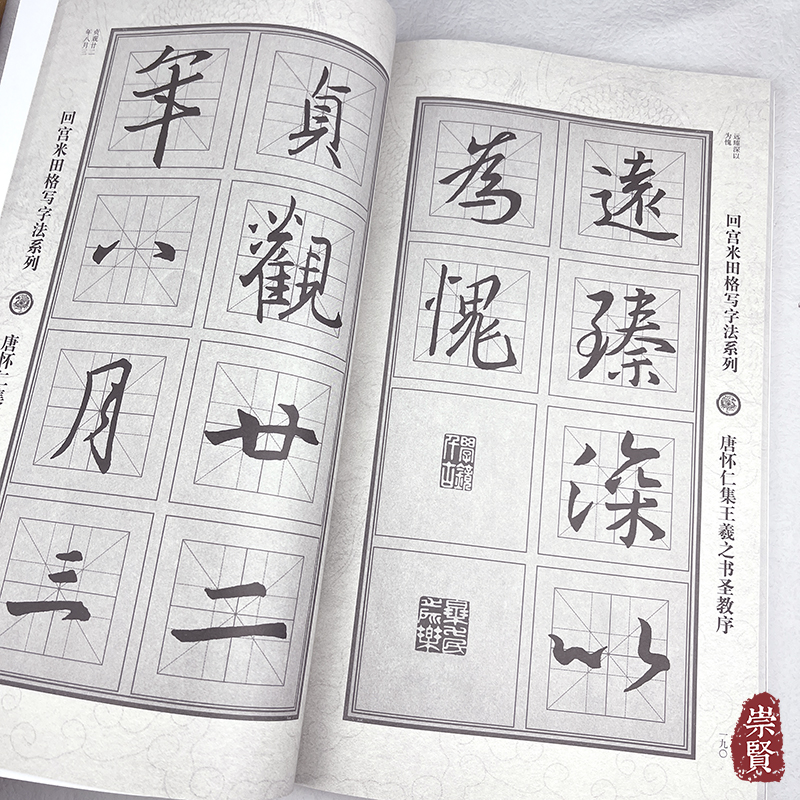 远臻深以
为愧
回宫米田格写字法系列
唐怀仁集王羲之书圣教序
一九〇
遠臻深以
為愧
貞觀廿二
年八月三
贞观廿二
年八月三
回宫米田格写字法系列
唐怀仁集
崇賢